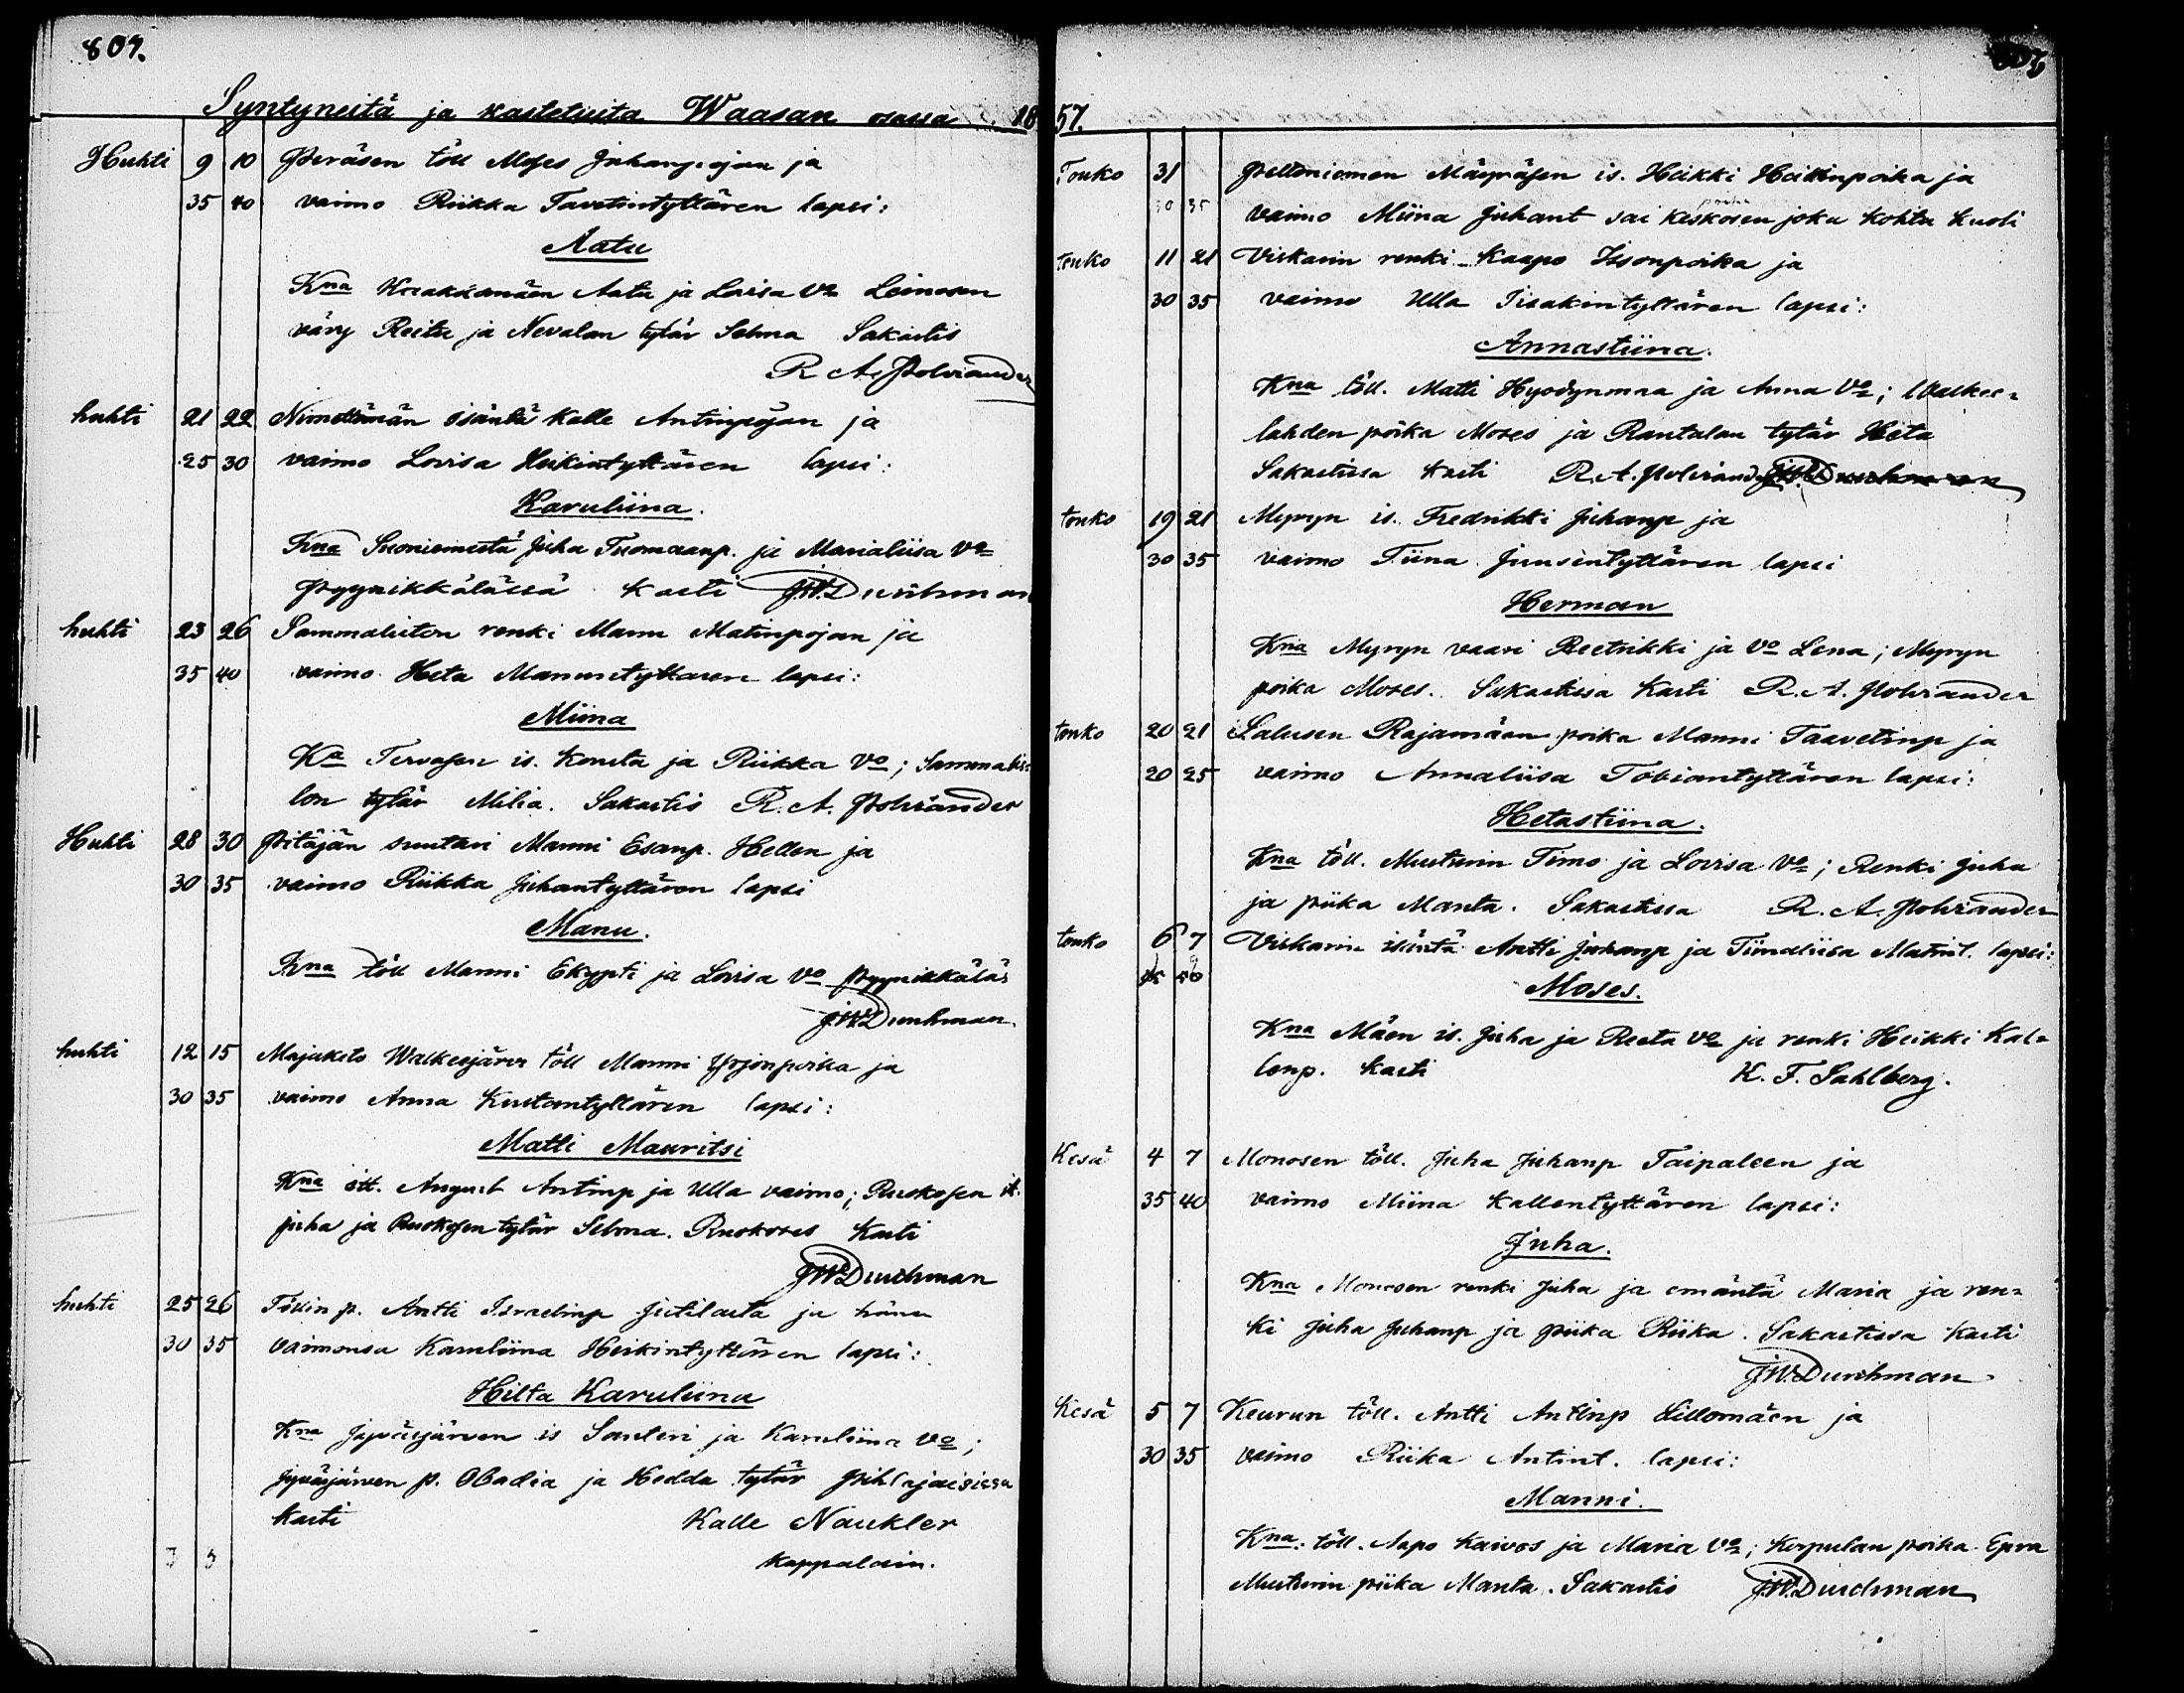 807.
Syntyneitä ja kastetuita Waasan osassa 18
Huhti 9 10 Peräsen töll Moses Juhanpojan ja
35 40 vaimo Riikka Tavetintyttären lapsi:
Aatu
Kna Aatu ja Lovisa Vo Leinosen
vävy Reitu ja Nevalan tytär Selma Sakastis
R A. Polviander
huhti 21 22 Nimettömän isäntä Kalle Antinpojan ja
25 30 vaimo Lovisa Heikintyttären lapsi:
Karuliina.
Kna Suoniemestä Juha Tuomaanp. ja Marialiisa Vo
Pyynikkälässä kasti J.W. Durchman
huhti 23 26 Sammaliston renki Manu Matinpojan ja
35 40 vaimo Heta Manuntyttären lapsi:
Miina
Ka Tervasen is. Konsta ja Riikka Vo; Sammalis-
lon tytär Milia. Sakastis R. A. Polviander
Huhti 28 30 Pitäjän suutari Manni Esanp. Hellen ja
30 35 vaimo Riikka Juhantyttären lapsi
Manu.
Kna töll Manni Ekypti ja Lovisa Vo Pyynikkäläs
J.W. Durchman.
huhti 12 15 Majakets Walkeejärvi töll Manni Yrjönpoika ja
30 35 vaimo Anna Kustantyttären lapsi:
Matti Mauritsi
Kna itt. August Antinp ja Ulla vaimo; Ruskosen it.
juha ja Ruokosen tytär Selma. Ruokoses Kasti
J.W. Durchman
huhti 25 26 Töllin p. Antti Israelinp Jutilasta ja hänen
30 35 vaimonsa Karuliina Heikintyttären lapsi:
Hilta Karuliina
Kna Jyväsjärven is Santeri ja Karuliina Vo;
Jyväsjärven p. Obadia ja Hedda tytär Pihlajaisissa
kasti Kalle Naukler
kappalain.
57.
Touko 31 Peltoniemen Mäyräsen is. Heikki Heikinpoika ja
30 35 vaimo Miina Juhant sai keskosen poika joka kohta kuoli
touko 11 21 Viskarin renki Kaapo Issonpoika ja
30 35 vaimo Ulla Iisakintyttären lapsi:
Annastiina.
Kna töll. Matti Hyödynmaa ja Anna Vo; Walkee-
lahden poika Moses ja Rantalan tytär Heta
Sakastissa kasti R. A. Polviander J.W. Durchman
touko 19 21 Myryn is. Fredrikki Juhanp ja
30 35 vaimo Tiina Juusentyttären lapsi
Herman
Kna Myryn vaari Reetrikki ja Vo Lena; Myryn
poika Moses. Sakastissa kasti R. A. Polviander
touko 20 21 Salusen Rajamäen poika Manni Taavetinp ja
20 25 vaimo Annaliisa Tobiantyttären lapsi:
Hetastiina.
Kna töll. Musturin Timo ja Lovisa Vo; Renki Juha
ja piika Manta. Sakastissa R. A. Polviander
touko 6 7 Viskarin isäntä Antti Juhanp ja Tiinaliisa Matint. lapsi:
Moses.
Kna Mäen is. Juha ja Reeta Vo ja renki Heikki Kal-
lenp. kasti K. F. Sahlberg.
Kesä 4 7 Monosen töll. Juha Juhanp Taipaleen ja
35 40 vaimo Miina Kallentyttären lapsi:
Juha.
Kna Monosen renki Juha ja emäntä Maria ja ren-
ki Juha Juhanp ja piika Riika. Sakastissa kasti
J.W. Durchman
Kesä 5 7 Keurun töll. Antti Antinp Sillomäen ja
30 35 vaimo Riika Antint. lapsi:
Manni.
Kna: töll. Aapo Kaivos ja Maria Vo; Korpulan poika Epra
Musturin piika Manta. Sakastis J.W. Durchman